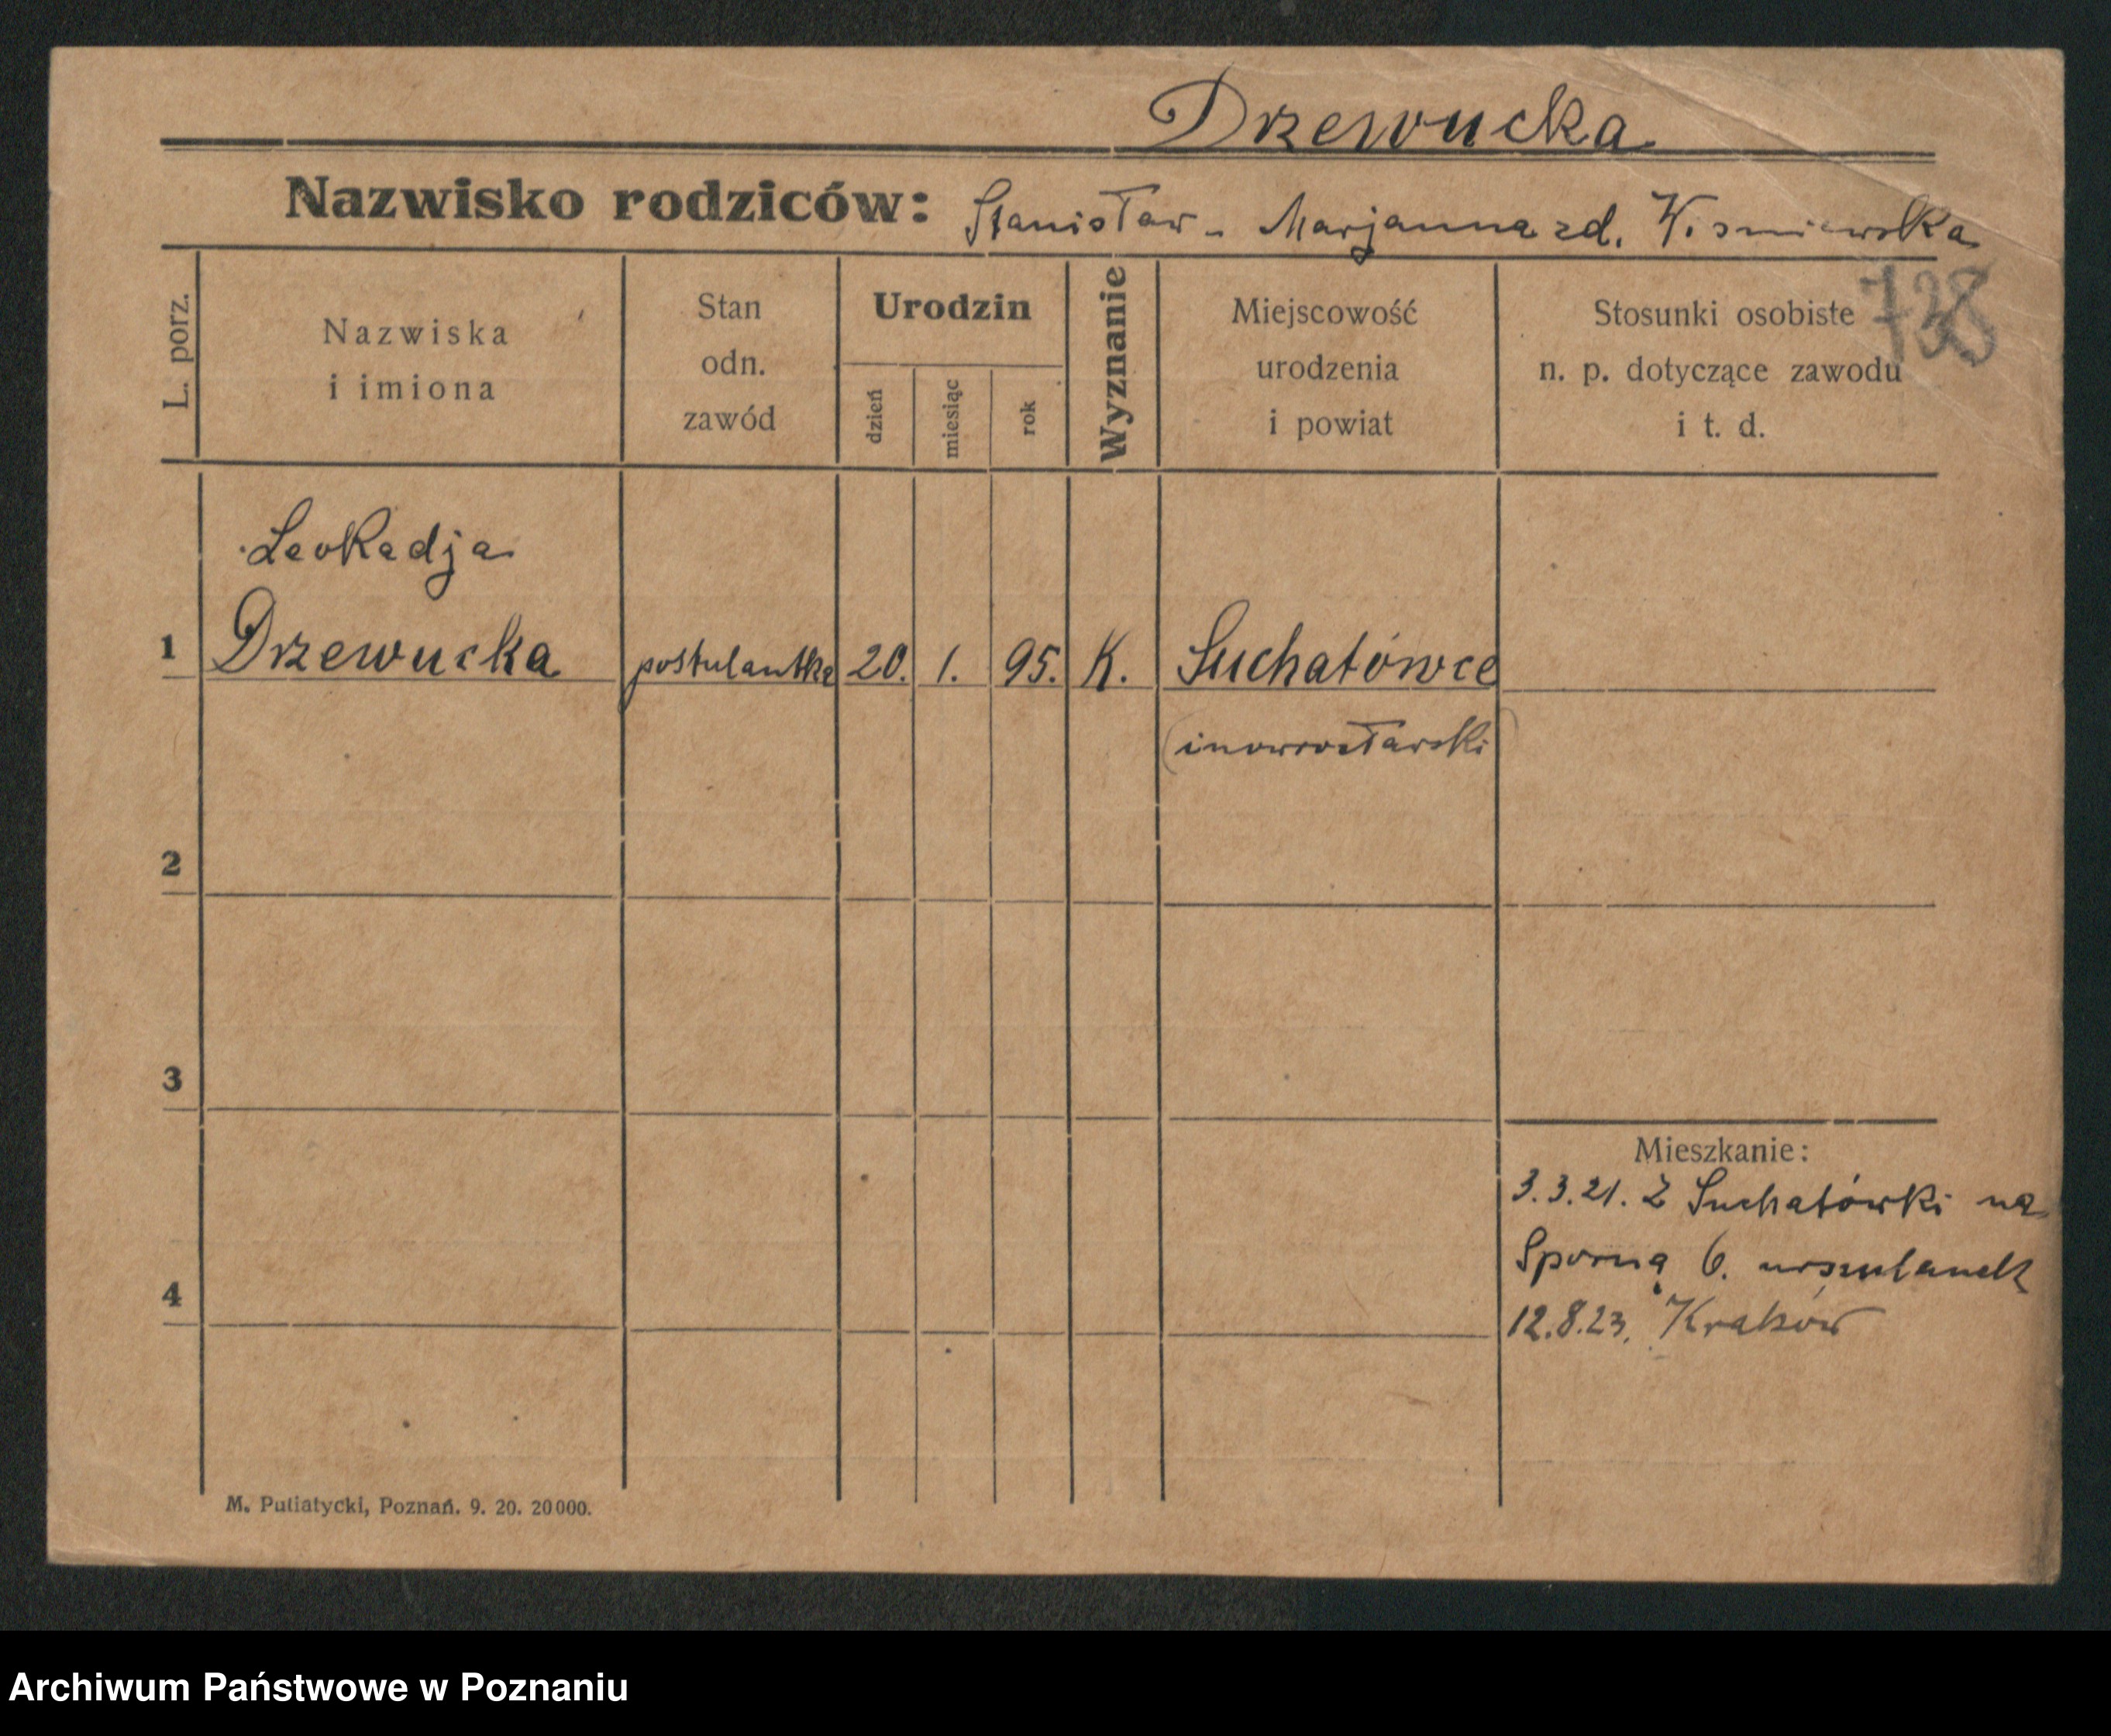 Drzewucka
Nazwisko rodziców: Stanisław - Marjanna zd. Wismiewska
738
L. porz.
Nazwiska
i imiona
Stan
odn.
zawód
Urodzin
dzień
miesiąc
rok
Wyznanie
Miejscowość
urodzenia
i powiat
Stosunki osobiste
n. p. dotyczące zawodu
i t. d.
Leokadja
1 Drzewucka postulantka 20. 1. 95. K. Suchatówce
(inowrocławski)
2
3
Mieszkanie:
3.3.21. Z Suchatówki na
Sporną 6. urszulanek
4
12.8.23. Kraków
M. Putiatycki, Poznań. 9. 20. 20000.
Archiwum Państwowe w Poznaniu